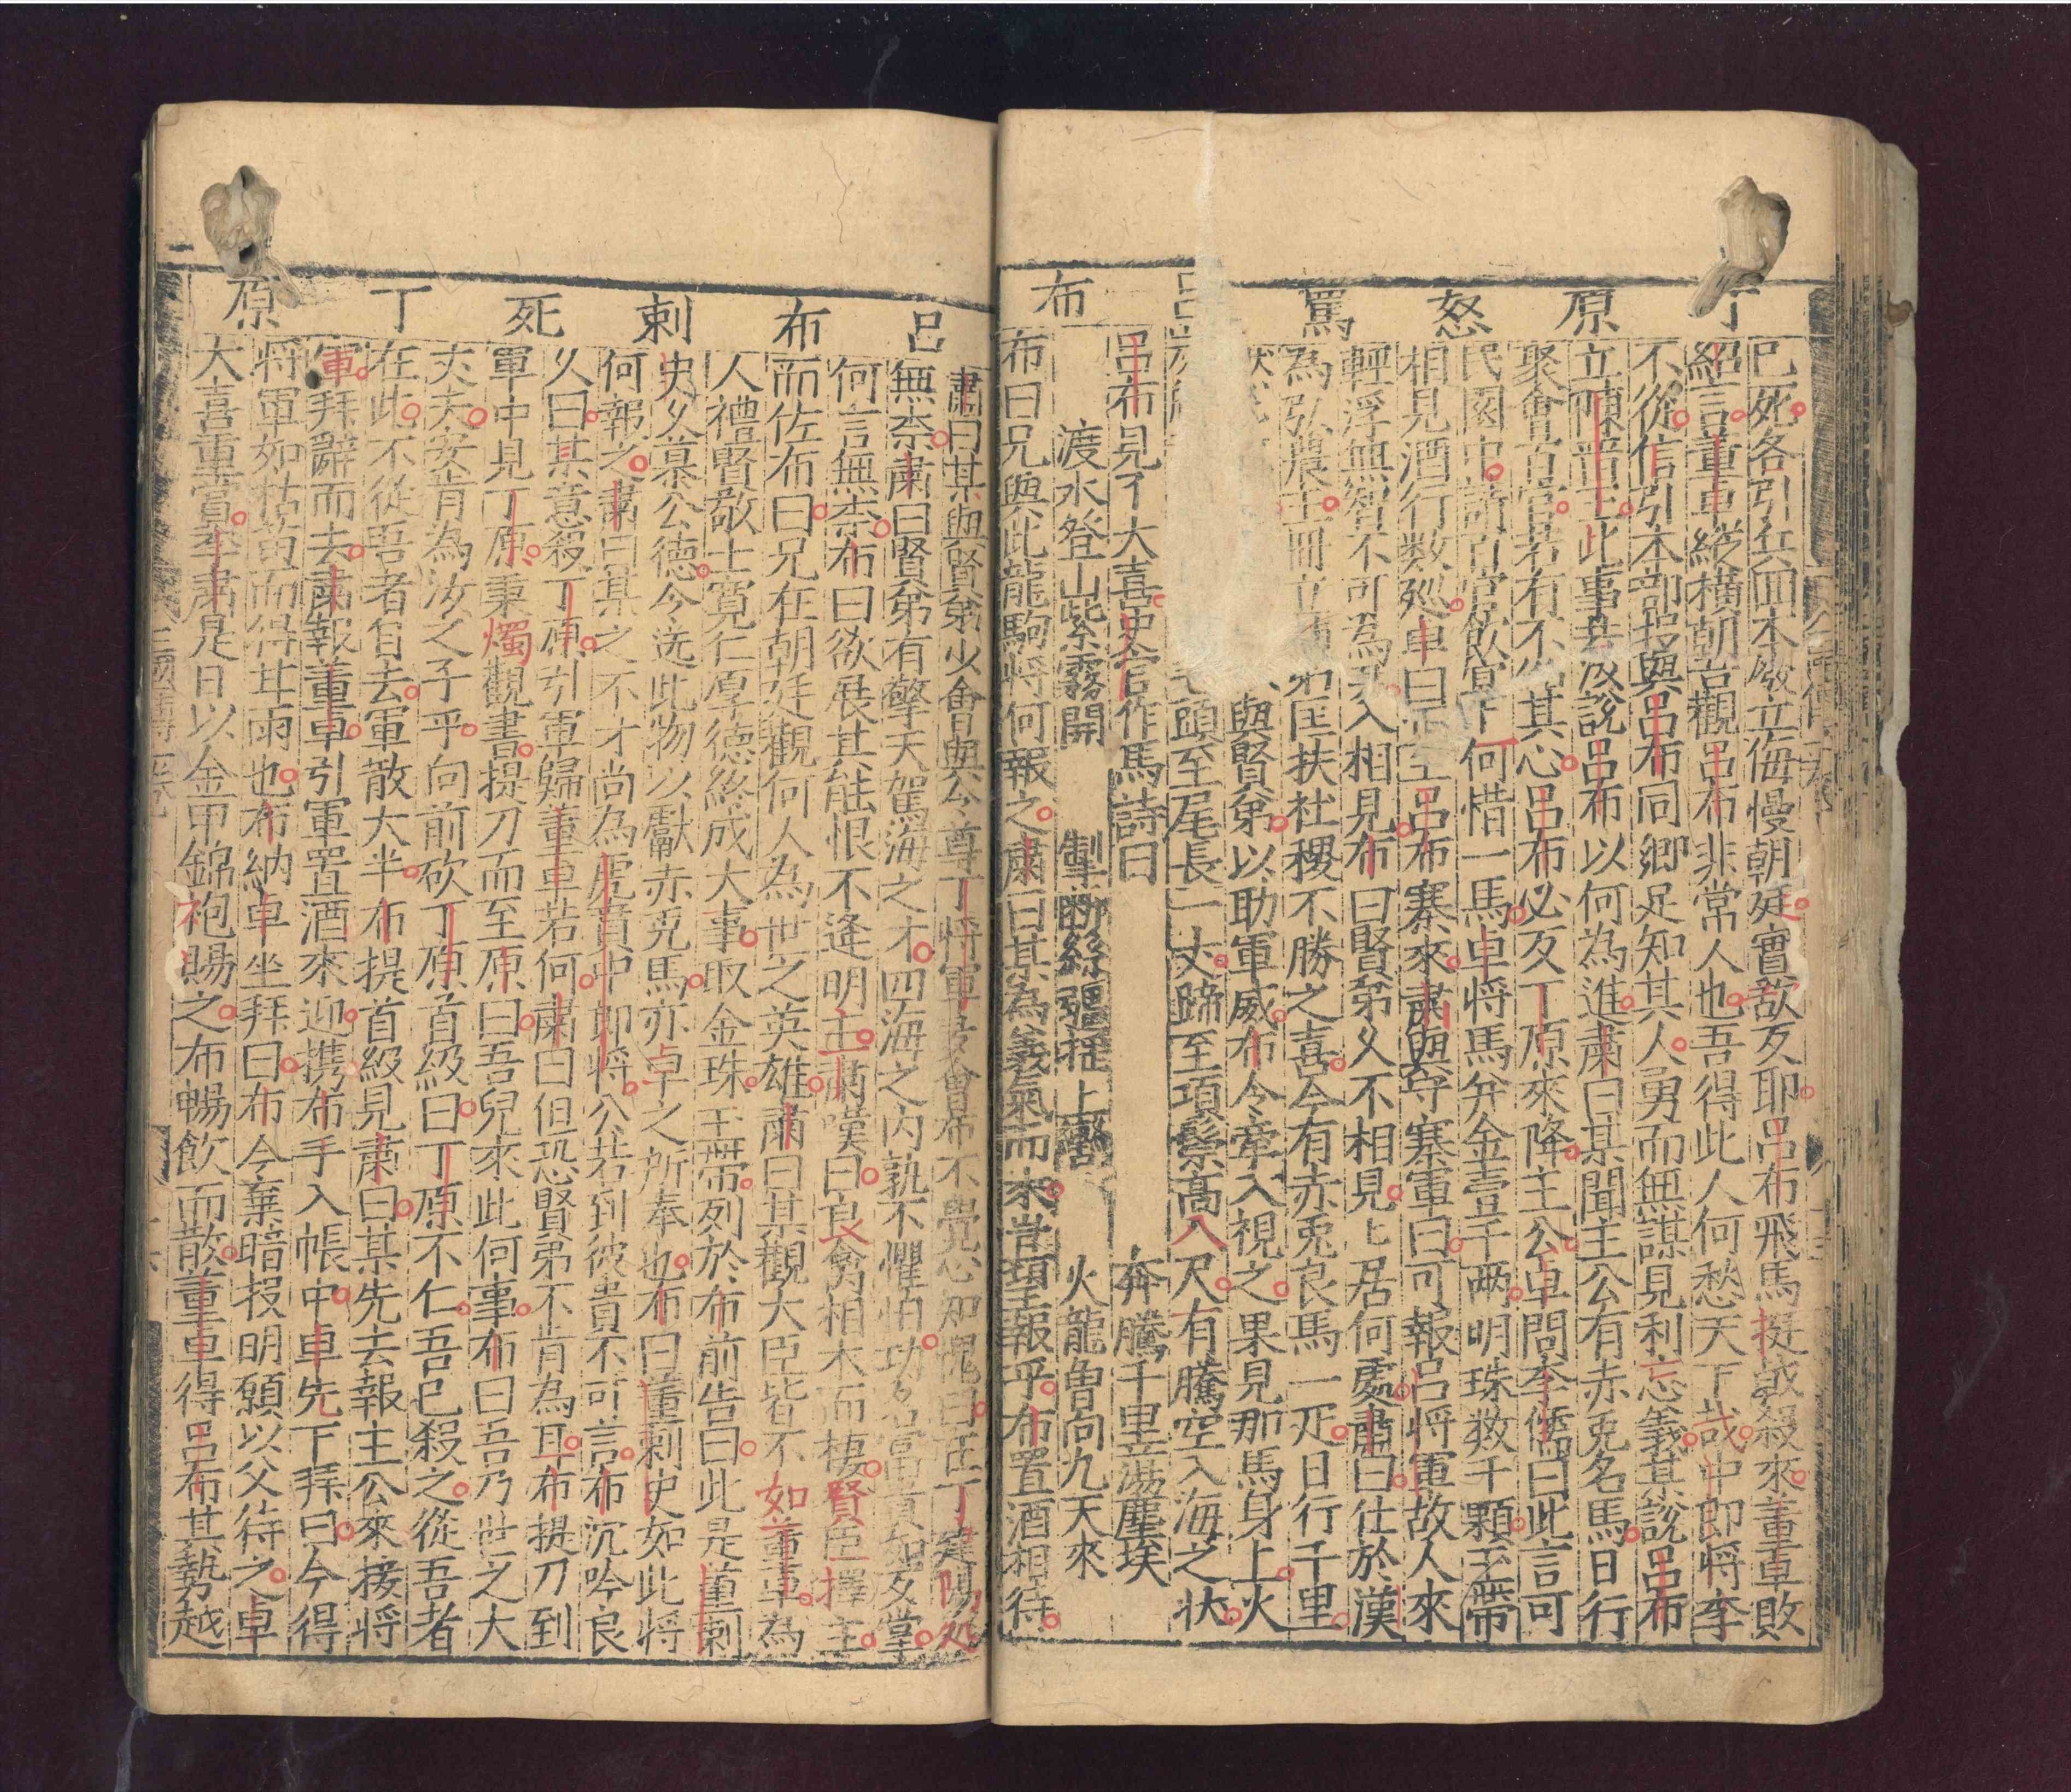 丁原怒罵呂布
已死各引兵回本廠立侮慢朝廷實欲反耶呂布飛馬挺戟殺來董卓敗
絕言董卓縱橫朝岩觀呂布非常人也吾得此人何愁天下哉中郎將李
不從信引本部投與呂布同鄉足知其人勇而無謀見利忘義某說呂布
立陳晋王此事共反說呂布以何為進肅曰某聞主公有赤兎名馬日行
聚會百官若有不從其心呂布必反丁原來降主公卓問李儒曰此言可
民國中請引官飲宴下何惜一馬卓将馬并金壹千両明珠数千顆玉帶
相見酒行数廵卓曰呂布寨來肅與守寨軍曰可報呂將軍故人來
輕浮無智不可為君入相見布曰賢弟久不相見〻居何處肅曰仕於漢
為弘農王冊立匡扶社稷不勝之喜今有赤兎良馬一疋日行千里
與賢弟以助軍威布令牽入視之果見那馬身上火
頭至尾長一丈蹄至項鬃高八尺有騰空入海之状
呂布見了大喜史官作馬詩曰 奔騰千里蕩塵埃
渡水登山紫霧開 掣斷絲韁揺上轡 火龍魯向九天來
布曰兄與此龍駒將何報之肅曰某為義氣而來豈望報乎布置酒相待
呂布刺死丁原
肅曰某與賢弟少會與公尊丁將軍多會布不覺忿加愧曰在丁建陽処
無柰肅曰賢弟有擎天駕海之才四海之内孰不懼怕功名富貴如反掌
何言無柰布曰欲展其能恨不逢明主肅嘆曰良禽相木而棲賢臣擇主
而佐布曰兄在朝廷觀何人為世之英雄肅曰某觀大臣皆不如董卓為
人禮賢敬士寬仁厚德終成大事取金珠玉帶列於布前告曰此是董刺
史久慕公德令送此物以獻赤兎馬亦卓之所奉也布曰董刺史如此將
何報之肅曰某之不才尚為虎賁中郎將公若到彼貴不可言布沉吟良
久曰某意殺丁原引軍歸董卓若何肅曰但恐賢弟不肯為耳布提刀到
軍中見丁原秉燭觀書提刀而至原曰吾兒來此何事布曰吾乃世之大
丈夫安肯為汝之子乎向前砍丁原首級曰丁原不仁吾已殺之從吾者
在此不從吾者自去軍散大半布提首級見肅曰某先去報主公來接將
軍拜辭而去肅報董卓引軍置酒來迎携布手入帳中卓先下拜曰今得
将軍如枯苗而得其雨也布納卓坐拜曰布今棄暗投明願以父待之卓
大喜重賞李肅是日以金甲錦袍賜之布暢飲而散董卓得呂布其勢越